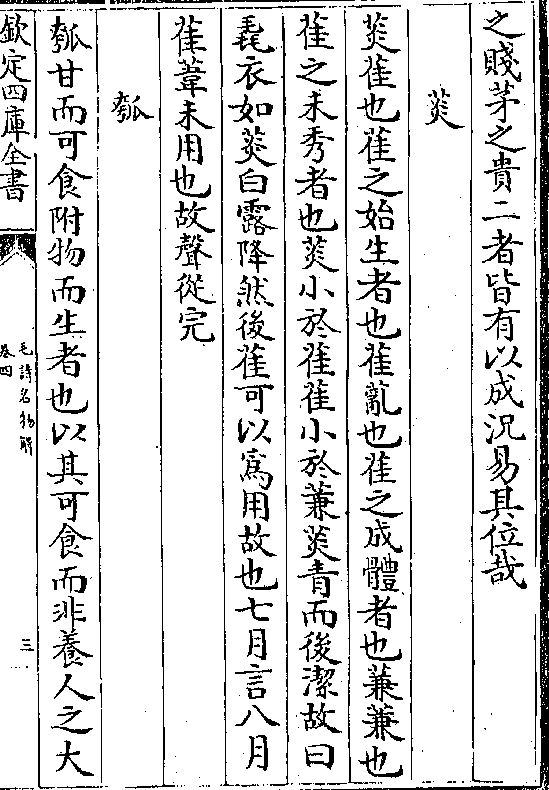 之賤茅之貴二者皆有以成況易其位哉
菼
菼萑也萑之始生者也萑薍也萑之成體者也蒹蒹也
萑之未秀者也菼小於萑萑小於蒹菼青而後潔故曰
毳衣如菼白露降然後萑可以爲用故也七月言八月
萑葦未用也故聲從完
瓠
瓠甘而可食附物而生者也以其可食而非養人之大
欽定四庫全書
毛詩名物解
卷四
三